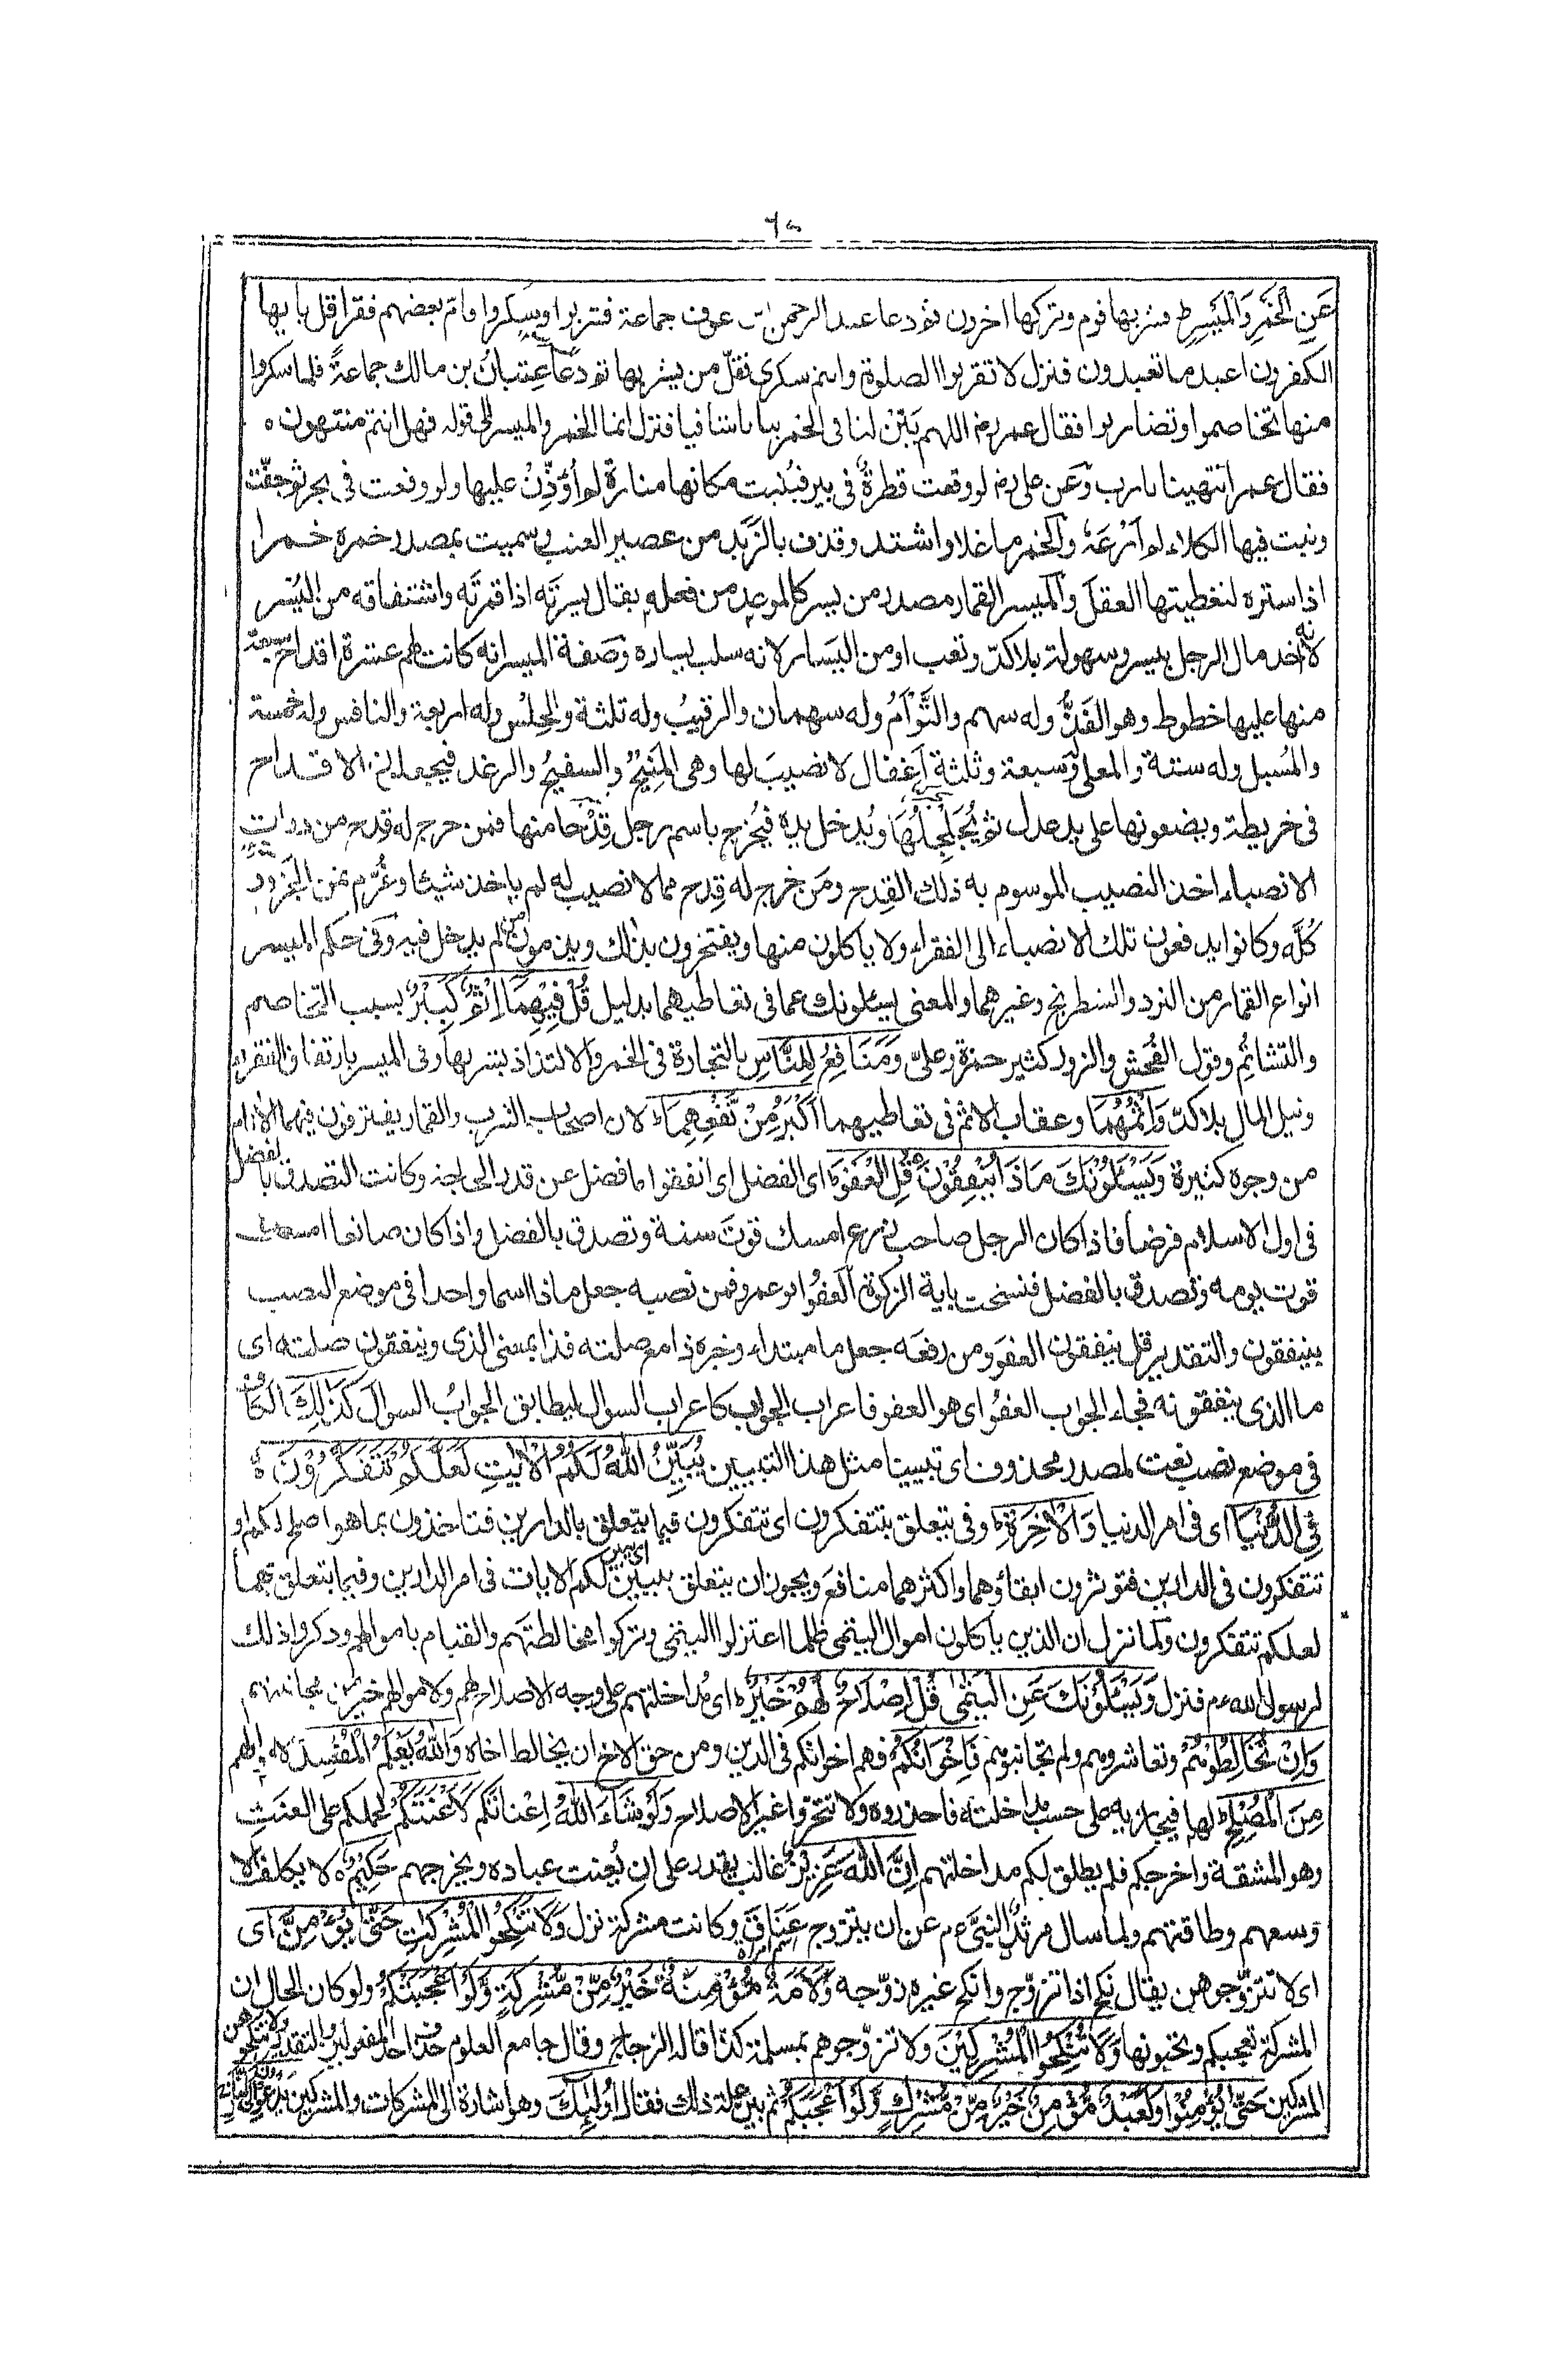 ٦٥
عَنِ الْخَمْرِ وَالْمَيْسِرِ ط فشربها قوم وتركها اخرون ثم دعا عبد الرحمن بن عوف جماعة فشربوا وسكروا وام بعضهم فقرا قل يا ايها
الكفرون اعبد ما تعبدون فنزل لا تقربوا الصلوة وانتم سكرى فقلّ من يشربها ثم دعا عِتبانُ بن مالك جماعةً فلما سكروا
منها تخاصموا وتضاربوا فقال عمر رض اللهم بَيِّنْ لنا فى الخمر بيانا شافيا فنزل انما الخمر والميسر الى قوله فهل انتم منتهون ه
فقال عمر انتهينا يا رب وَعَن على رض لو وقعت قطرةٌ فى بير فبُنيت مكانها منارة لم اُؤذِّنْ عليها ولو وقعت فى بحر ثم جفّت
ونبت فيها الكلاء لم اَرْعَهُ وَالخمر ما غلا واشتد وقذف بالزَبَد من عصير العنب وسميت بمصدر خمره خمرا
اذا ستره لتغطيتها العقل وَالميسر القمار مصدر من يسر كالموعد من فعله يقال يسرته اذا قمرته واشتقاقه من اليُسر
لانه اخذ مال الرجل بيسر وسهولة بلا كدّ وتعب او من اليَسار لانه سلب يساره وَصفة الميسر انه كانت لهم عشرة اقداح سبعة
منها عليها خطوط وهو الفَذُّ وله سهم والتَّوْاَمُ وله سهمان والرقيبُ وله ثلثة والحِلسُ وله اربعة والنافس وله خمسة
والمُسبل وله ستة والمعلى وله سبعة وثلثة اَغفال لا نصيبَ لها وهى المَنِيحُ والسفيحُ والوغد فيجعلون الاقداح
فى خريطة ويضعونها على يد عدل ثم يُجَلْجِلُهَا ويُدخل يده فيُخرج باسم رجل قِدْحا منها فمن خرج له قدح من ذوات
الانصباء اخذ النصيب الموسوم به ذلك القِدح ومَن خرج له قِدح مما لا نصيب له لم ياخذ شيئا وغُرّم ثمن الجزور
كُلَّه وكانوا يدفعون تلك الانصباء الى الفقراء ولا ياكلون منها ويفتخرون بذلك ويذمون من لم يدخل فيه وَفى حكم الميسر
انواع القمار من النرد والشطرنج وغيرهما والمعنى يسئلونك عما فى تعاطيهما بدليل قُلْ فِيْهِمَا اِثْمٌ كَبِيْرٌ بسبب التخاصم
والتشاتُمِ وقول الفُحش والزور كثير حمزة وعلىّ وَمَنَافِعُ لِلنَّاسِ بالتجارة فى الخمر والالتذاذ بشربها وفى الميسر بارتفاق الفقراء
ونيل المال بلا كدّ وَاِثْمُهُمَا وعقاب الاثم فى تعاطيهما اَكْبَرُ مِنْ نَّفْعِهِمَا ط لان اصحاب الشرب والقمار يقترفون فيهما الاثام
من وجوه كثيرة وَيَسْئَلُوْنَكَ مَاذَا يُنْفِقُوْنَ ه قُلِ الْعَفْوَ ط اى الفضل اى انفقوا ما فضل عن قدر الحاجة وكانت التصدق بالفضل
فى اول الاسلام فرضا فاذا كان الرجل صاحب زرع امسك قوتَ سنة وتصدق بالفضل واذا كان صانعا امسك
قوت يومه وتصدق بالفضل فنسخت باية الزكوة العفوُ ابو عمرو فمن نصبه جعل ماذا اسما واحدا فى موضع النصب
بينفقون والتقدير قل ينفقون العفو ومن رفعه جعل ما مبتداء وخبره ذا مع صلته فذا بمعنى الذى وينفقون صلته اى
ما الذى ينفقونه فجاء الجواب العفوُ اى هو العفو فاعراب الجواب كاعراب السوال ليطابق الجوابُ السوالَ كَذَالِكَ الكاف
فى موضع نصب نعت لمصدر محذوف اى تبيينا مثل هذا التبيين يُبَيِّنُ اللّٰهُ لَكُمُ الْاٰيٰتِ لَعَلَّكُمْ تَتَفَكَّرُوْنَ ه
فِى الدُّنْيَا اى فى امر الدنيا وَالْاٰخِرَةِ ط وفى يتعلق بتتفكرون اى تتفكرون فيما يتعلق بالدارين فتاخذون بما هو اصلح لكم او
تتفكرون فى الدارين فتوثرون ابقاؤهما واكثرهما منافع ويجوز ان يتعلق بيبين لكم الايات فى امر الدارين وفيما يتعلق بهما
لعلكم تتفكرون ولما نزل ان الذين ياكلون اموال اليتمى ظلما اعتزلوا اليتمى وتركوا مخالطتهم والقيام باموالهم وذكروا ذلك
لرسول الله ءم فنزل وَيَسْئَلُوْنَكَ عَنِ الْيَتٰمٰى قُلْ اِصْلَاحٌ لَّهُمْ خَيْرٌ ط اى مُداخلتهم على وجه الاصلاح لهم ولاموالهم خير من مجانبتهم
وَاِنْ تُخَالِطُوْهُمْ وتعاشروهم ولم تجانبوهم فَاِخْوَانُكُمْ فهم اخوانكم فى الدين ومن حق الاخ ان يخالط اخاه وَاللّٰهُ يَعْلَمُ الْمُفْسِدَ لاموالهم
مِنَ الْمُصْلِحِ ط لها فيجازيه على حسب مداخلته فاحذروه ولا تتحروا غير الاصلاح وَلَوْ شَآءَ اللّٰهُ اِعْنَاتَكُم لَاَعْنَتَكُمْ لحملكم على العنت
وهو المشقة واخرجكم فلم يطلق لكم مداخلتهم اِنَّ اللّٰهَ عَزِيْزٌ غالب يقدر على ان يُعنت عباده ويحرجهم حَكِيْمٌ ه لا يكلف الا
وسعهم وطاقتهم ولما سال مرثدٌ النبىَّ ءم عن ان يتزوج عَنَاقَ وكانت مشركة نزل وَلَا تَنْكِحُوا الْمُشْرِكٰتِ حَتّٰى يُؤْمِنَّ اى
اى لا تتزوّجوهن يقال نكح اذا تزوّج وانكح غيره زوّجه وَلَاَمَةٌ مُّؤْمِنَةٌ خَيْرٌ مِّنْ مُّشْرِكَةٍ وَّلَوْ اَعْجَبَتْكُمْ ولو كان الحال ان
المشركة تعجبكم وتحبونها وَلَا تُنْكِحُوا الْمُشْرِكِيْنَ ولا تزوّجوهم بمسلمة كذا قاله الزجاج وقال جامع العلوم حذف احد المفعولين والتقدير ولا تنكحوهن
المشركين حَتّٰى يُؤْمِنُوْا وَلَعَبْدٌ مُّؤْمِنٌ خَيْرٌ مِّنْ مُّشْرِكٍ وَّلَوْ اَعْجَبَكُمْ ثم بين علة ذلك فقال اُولٰئِكَ وهو اشارة الى المشركات والمشركين